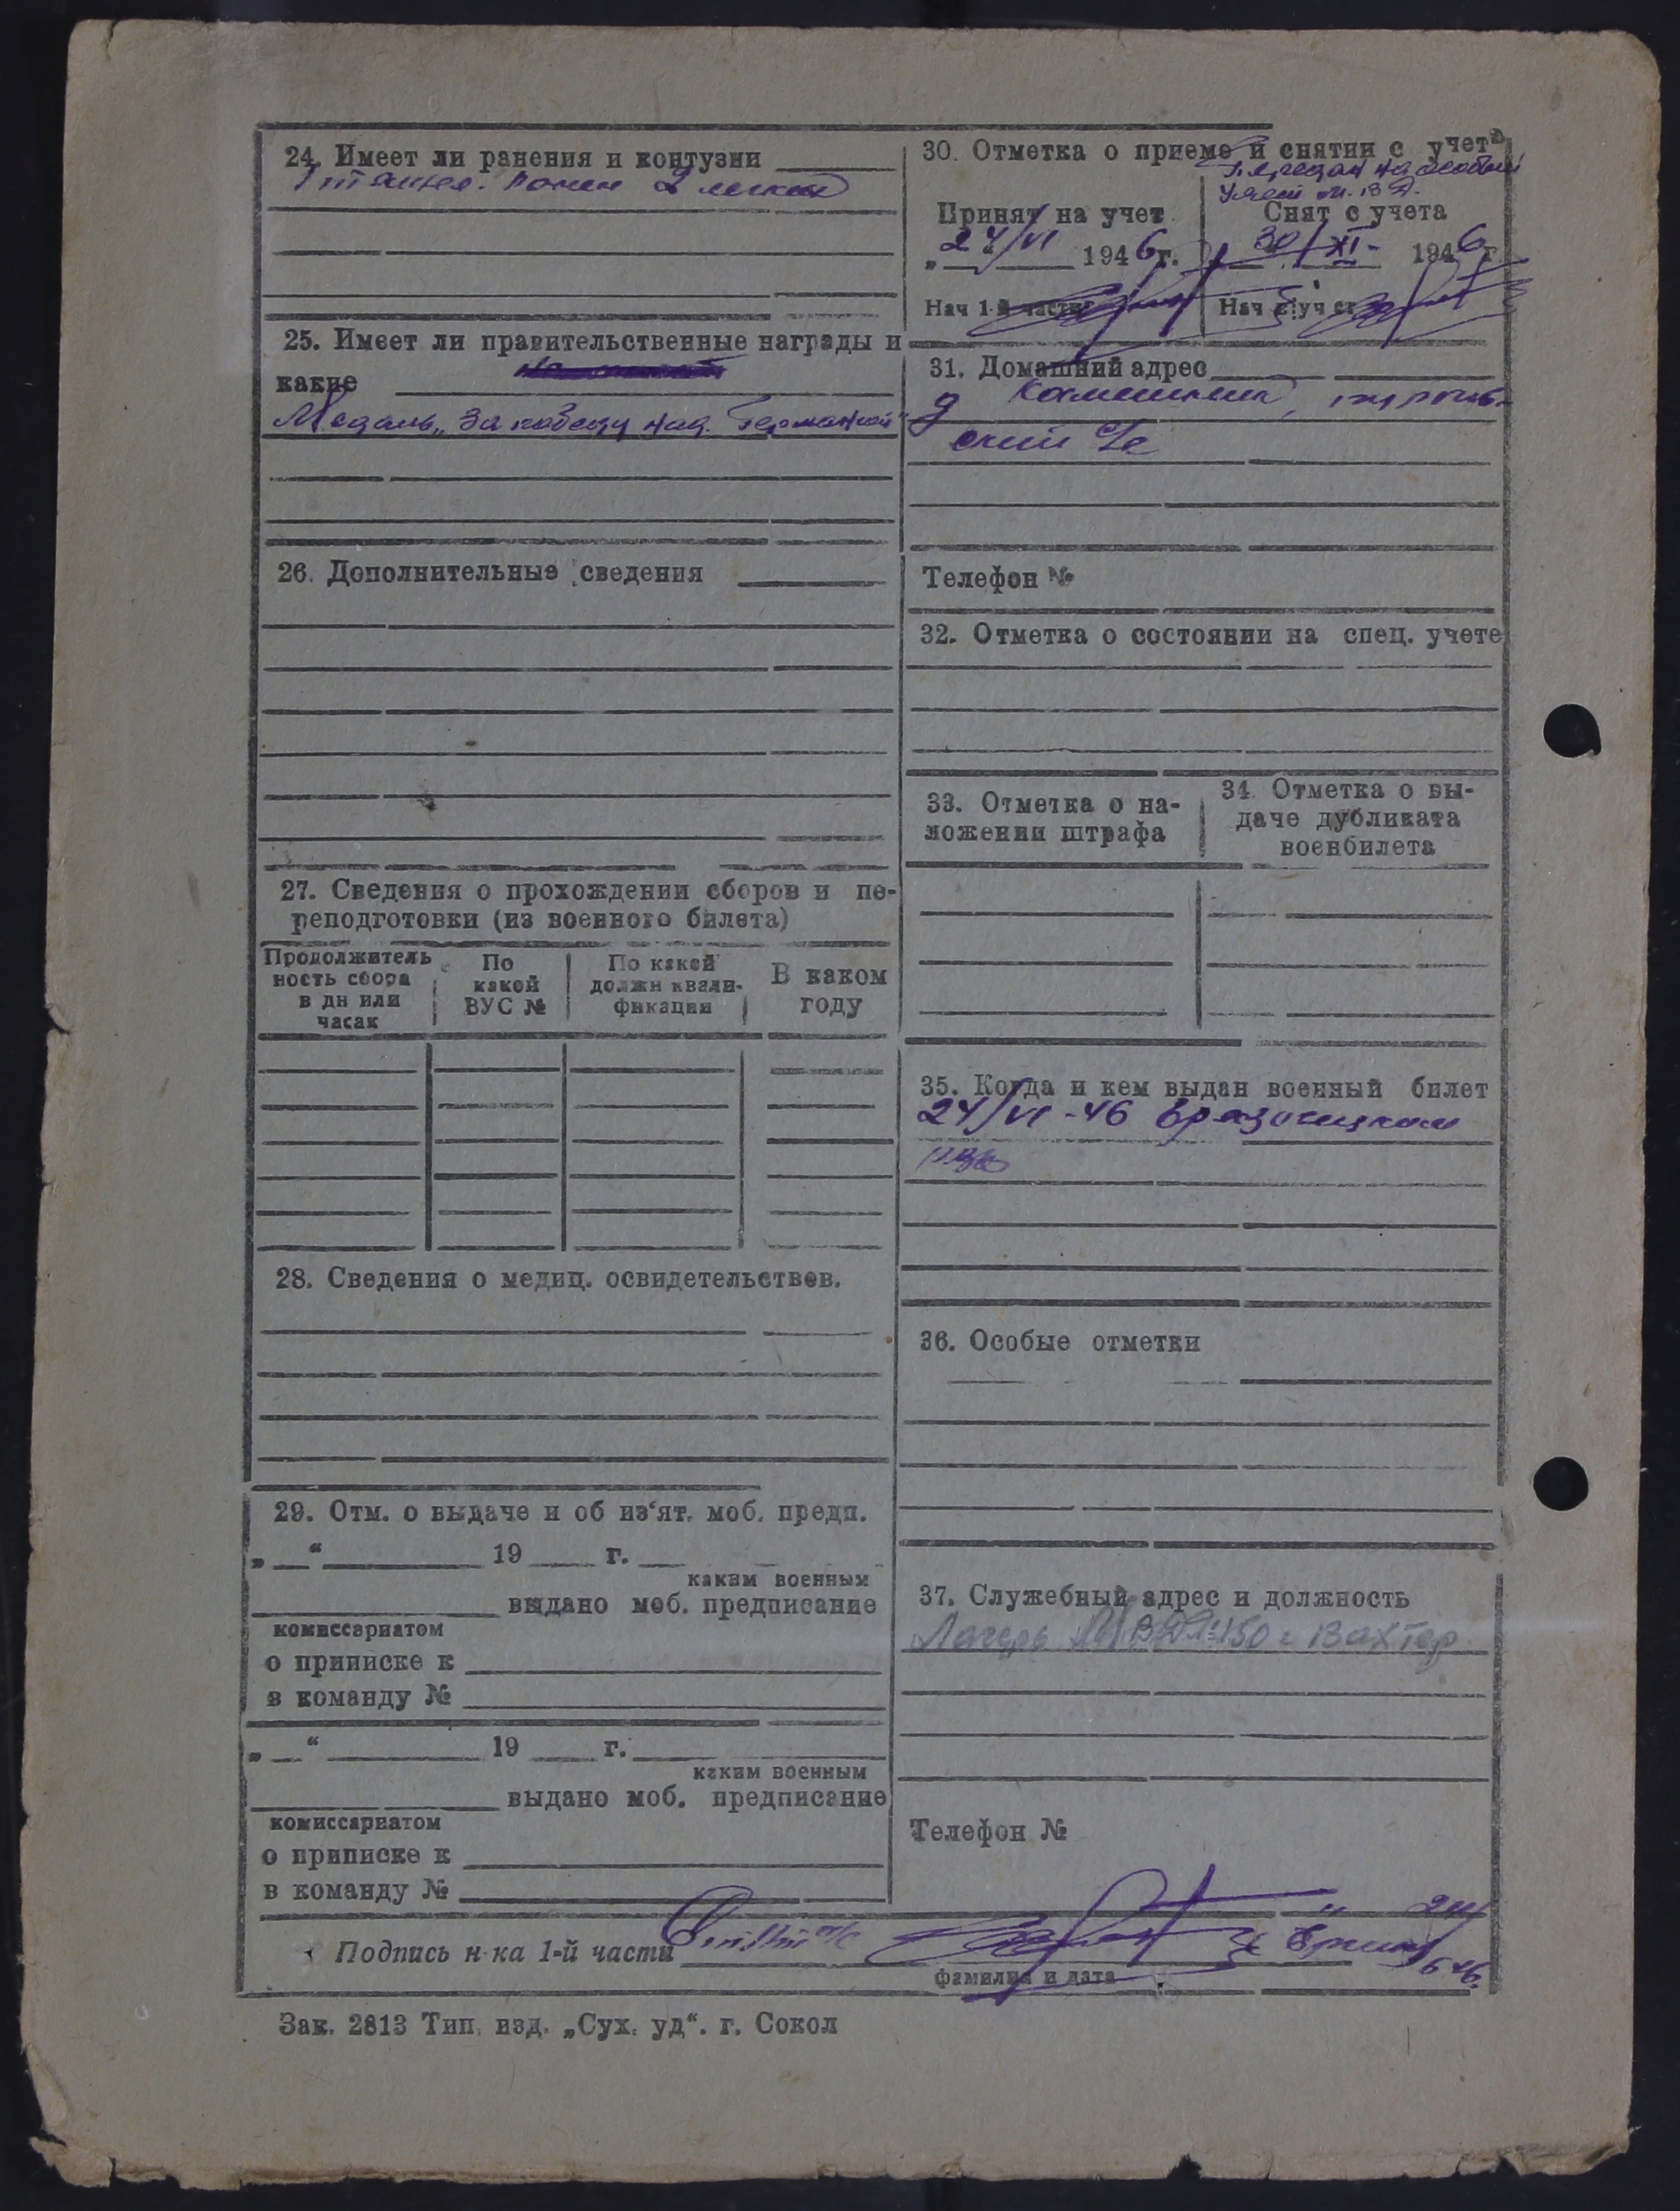 24. Имеет ли ранения и контузии
1 тяжел. ранен 2 легких
25. Имеет ли правительственные награды и
какие
Медаль „За победу над Германией"
26. Дополнительные сведения
27. Сведения о прохождении сборов и пе-
реподготовки (из военного билета)
Продолжитель
ность сбора
в дн или
часах
По
какой
ВУС №
По какой
должн квали-
фикации
В каком
году
28. Сведения о медиц. освидетельствов.
29. Отм. о выдаче и об из‘ят. моб. предп.
„ “ 19 г.
каким военным
выдано моб. предписание
комиссариатом
о приписке к
в команду №
„ “ 19 г.
каким военным
выдано моб. предписание
комиссариатом
о приписке к
в команду №
30. Отметка о приеме и снятии с учета
Передан на особый
учет М.В.Д.
Принят на учет
„24/VI 1946г.
Нач 1-й части
Снят с учета
30/XI- 1946г
Нач в!уч ст
31. Домашний адрес
д
ский с/с
Телефон №
32. Отметка о состоянии на спец. учете
33. Отметка о на-
ложении штрафа
34. Отметка о вы-
даче дубликата
военбилета
35. Когда и кем выдан военный билет
24/VI-46 Грязовецким
РВК
36. Особые отметки
37. Служебный адрес и должность
Лагерь МВД №150 Вахтер
Телефон №
Подпись н-ка 1-й части
фамилия и дата
Зак. 2813 Тип. изд. „Сух. уд“. г. Сокол